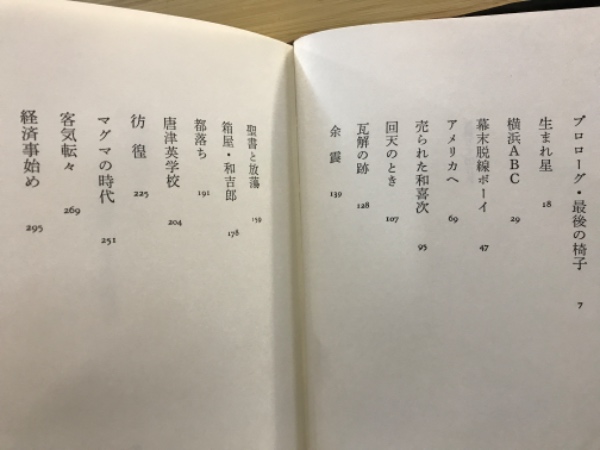 プロローグ・最後の椅子 7
生まれ星 18
横浜ABC 29
幕末脱線ボーイ 47
アメリカへ 69
売られた和喜次 95
回天のとき 107
瓦解の跡 128
余震 139
聖書と放蕩 159
箱屋・和吉郎 178
都落ち 191
唐津英学校 204
彷徨 225
マグマの時代 251
客気転々 269
経済事始め 295